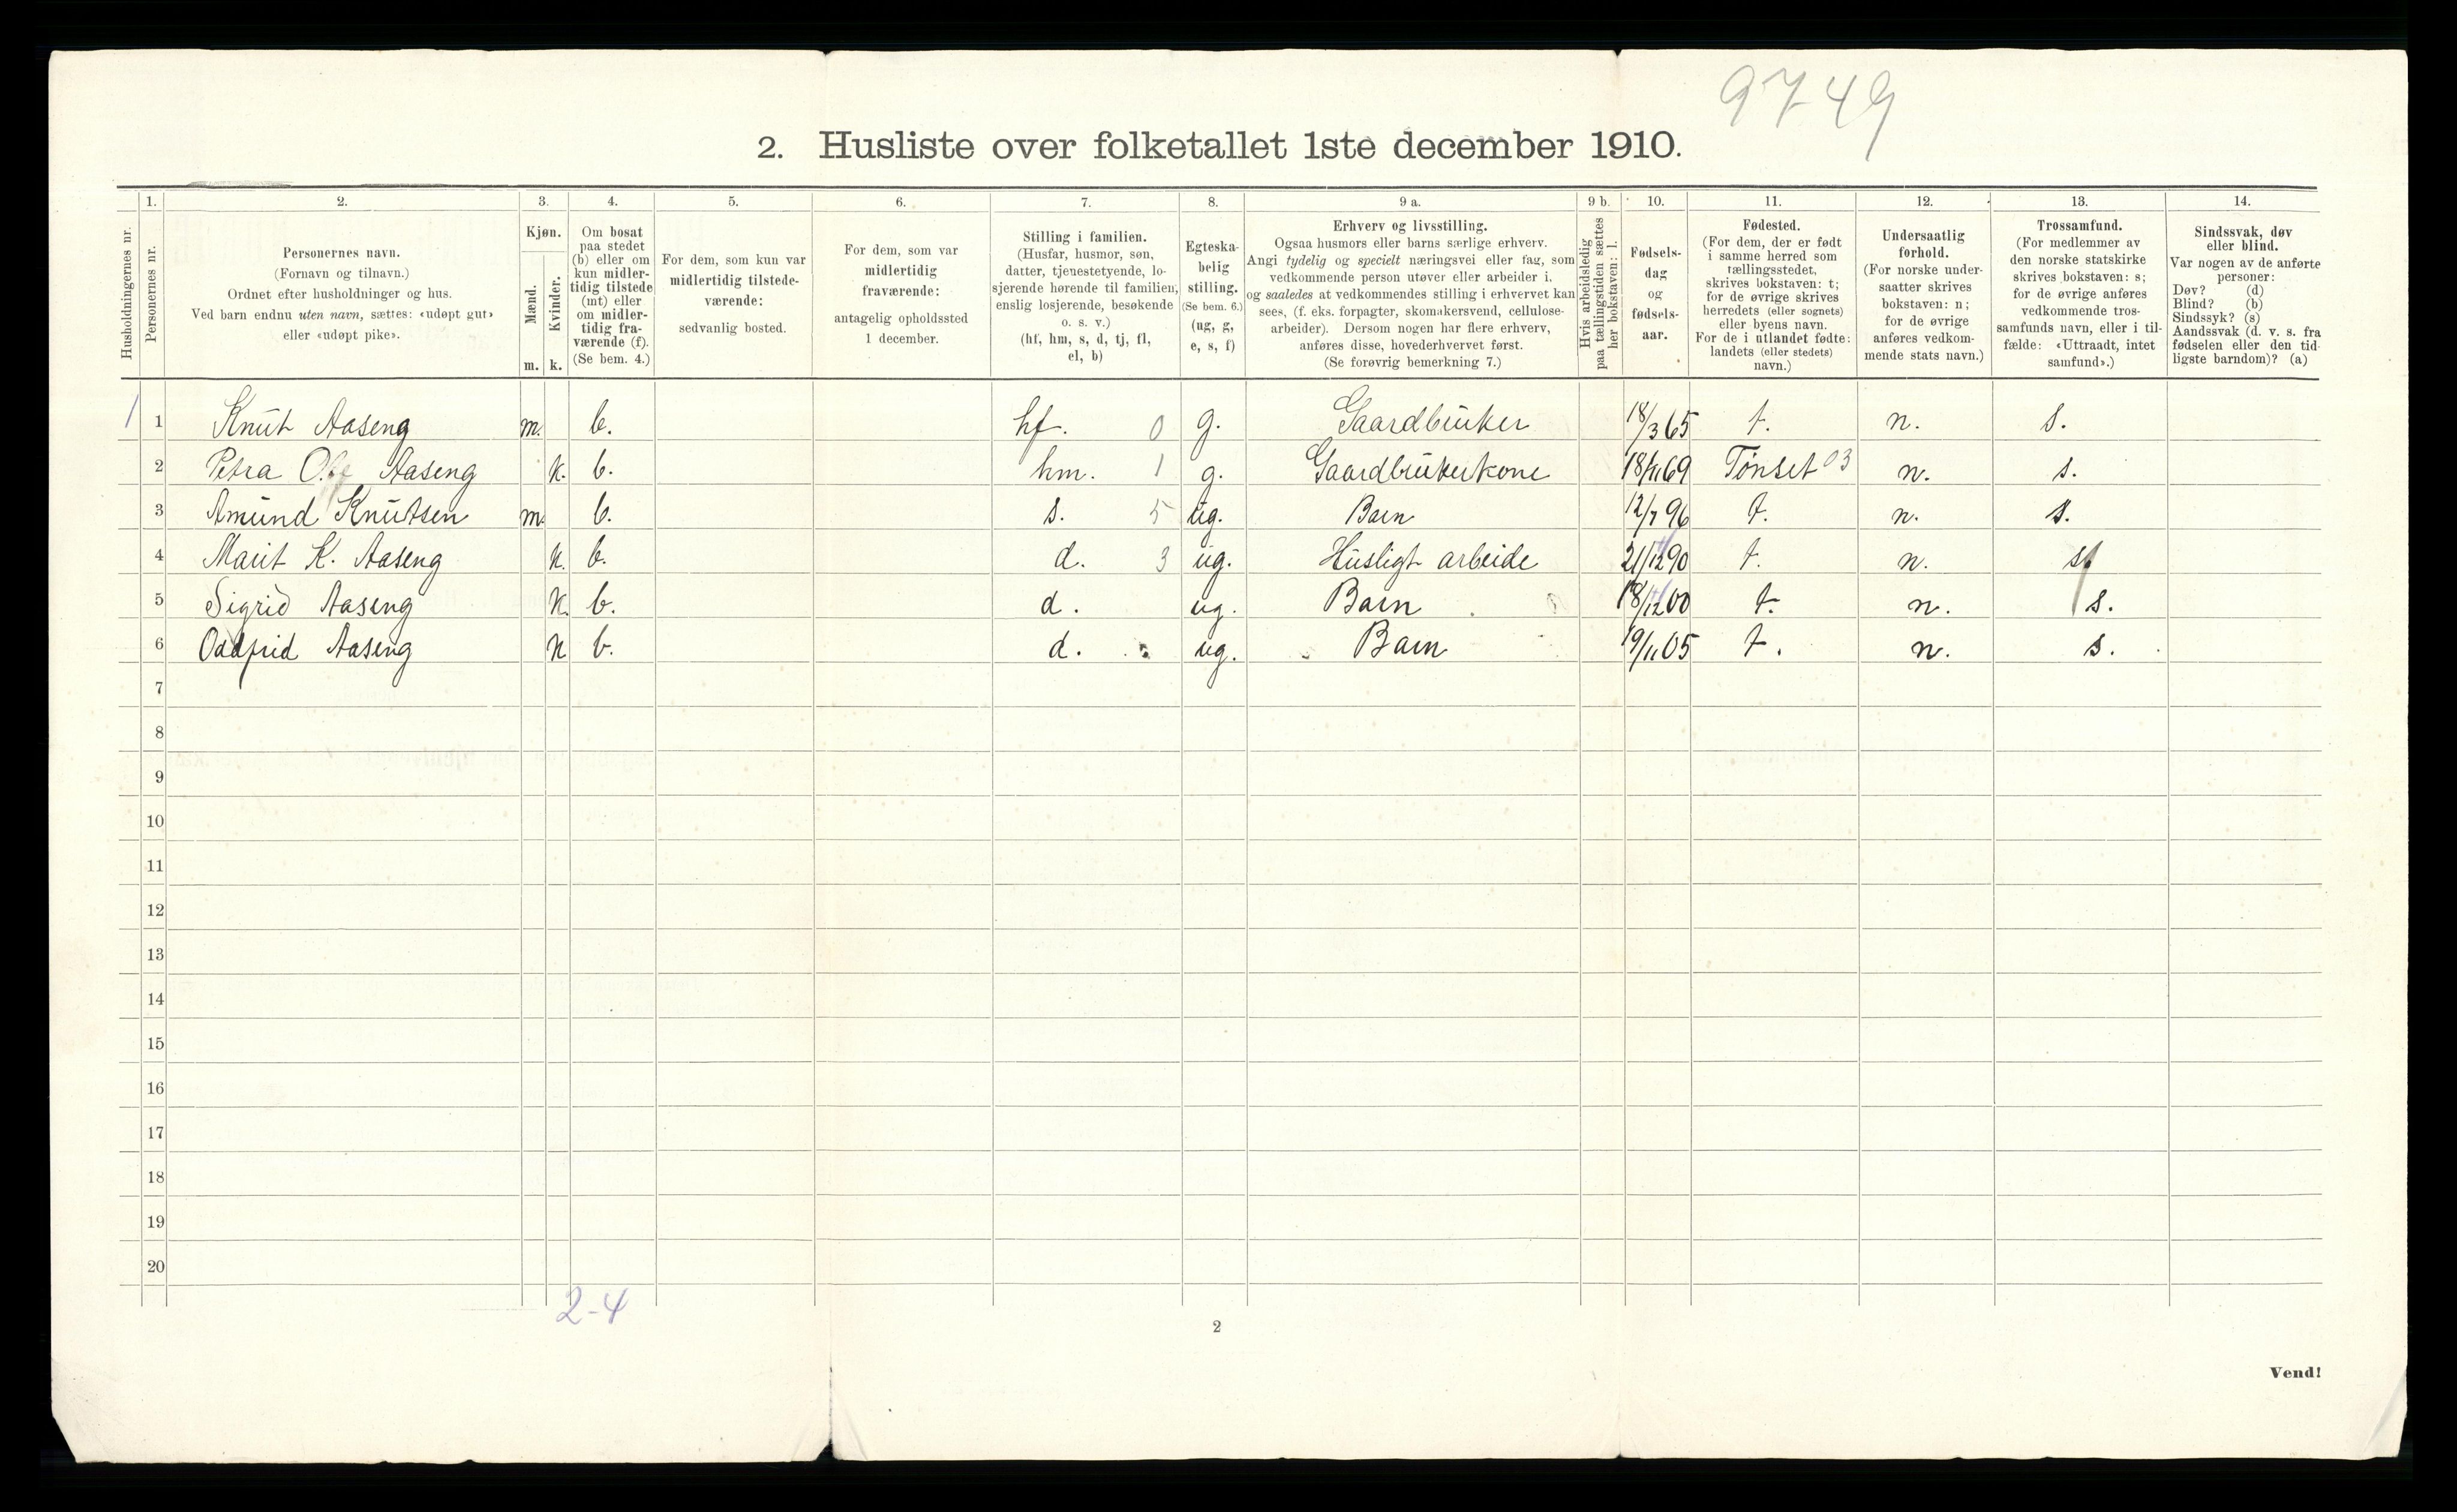 9749
2. Husliste over folketallet 1ste december 1910.
1. 2. 3. 4. 5. 6. 7. 8. 9 a. 9 b. 10. 11. 12. 13. 14.
Husholdningernes nr.
Personernes nr.
Personernes navn.
(Fornavn og tilnavn.)
Ordnet efter husholdninger og hus.
Ved barn endnu uten navn, sættes: «udøpt gut»
eller «udøpt pike».
Kjøn.
Mænd.
Kvinder.
m. k.
Om bosat
paa stedet
(b) eller om
kun midler-
tidig tilstede
(mt) eller
om midler-
tidig fra-
værende (f).
(Se bem. 4.)
For dem, som kun var
midlertidig tilstede-
værende:
sedvanlig bosted.
For dem, som var
midlertidig
fraværende:
antagelig opholdssted
1 december.
Stilling i familien.
(Husfar, husmor, søn,
datter, tjenestetyende, lo-
sjerende hørende til familien,
enslig losjerende, besøkende
o. s. v.)
(hf, hm, s, d, tj, fl,
el, b)
Egteska-
belig
stilling.
(Se bem. 6.)
(ug, g,
e, s, f)
Erhverv og livsstilling.
Ogsaa husmors eller barns særlige erhverv.
Angi tydelig og specielt næringsvei eller fag, som
vedkommende person utøver eller arbeider i,
og saaledes at vedkommendes stilling i erhvervet kan
sees, (f. eks. forpagter, skomakersvend, cellulose-
arbeider). Dersom nogen har flere erhverv,
anføres disse, hovederhvervet først.
(Se forøvrig bemerkning 7.)
Hvis arbeidsledig
paa tællingstiden sættes
her bokstaven: l.
Fødsels-
dag
og
fødsels-
aar.
Fødested.
(For dem, der er født
i samme herred som
tællingsstedet,
skrives bokstaven: t;
for de øvrige skrives
herredets (eller sognets)
eller byens navn.
For de i utlandet fødte:
landets (eller stedets)
navn.)
Undersaatlig
forhold.
(For norske under-
saatter skrives
bokstaven: n;
for de øvrige
anføres vedkom-
mende stats navn.)
Trossamfund.
(For medlemmer av
den norske statskirke
skrives bokstaven: s;
for de øvrige anføres
vedkommende tros-
samfunds navn, eller i til-
fælde: «Uttraadt, intet
samfund».)
Sindssvak, døv
eller blind.
Var nogen av de anførte
personer:
Døv? (d)
Blind? (b)
Sindssyk? (s)
Aandssvak (d. v. s. fra
fødselen eller den tid-
ligste barndom)? (a)
1 1 Knut Aaseng m. b. hf. 0 g. Gaardbruker 18/3 65 t. n. s.
2 Petra Aaseng k. b. hm. 1 g. Gaardbrukerkone 18/11 69 Tønset 03 n. s.
3 Amund Knutsen m. b. s. 5 ug. Barn 12/7 96 t. n. s.
4 Marit K. Aaseng k. b. d. 3 ug. Husligt arbeide 21/12 90 t. n. s.
5 Sigrid Aaseng k. b. d. ug. Barn 18/12 00 t. n. s.
6 Oddfrid Aaseng k b. d. ug. Barn 19/11 05 t. n. s.
7
8
9
10
11
12
13
14
15
16
17
18
19
20
2-4
2
Vend!